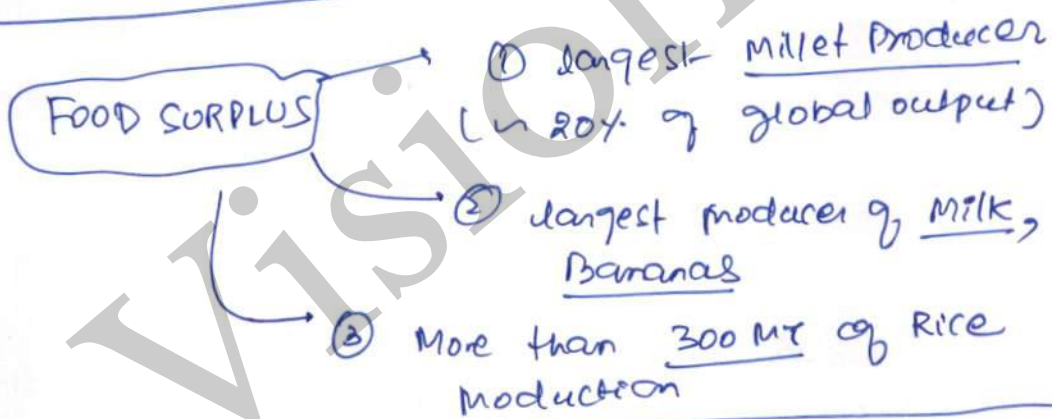 FOOD SURPLUS
① largest Millet Producer
(~ 20% of global output)
② largest producer of Milk,
Bananas
③ More than 300 MT of Rice
production
Vision